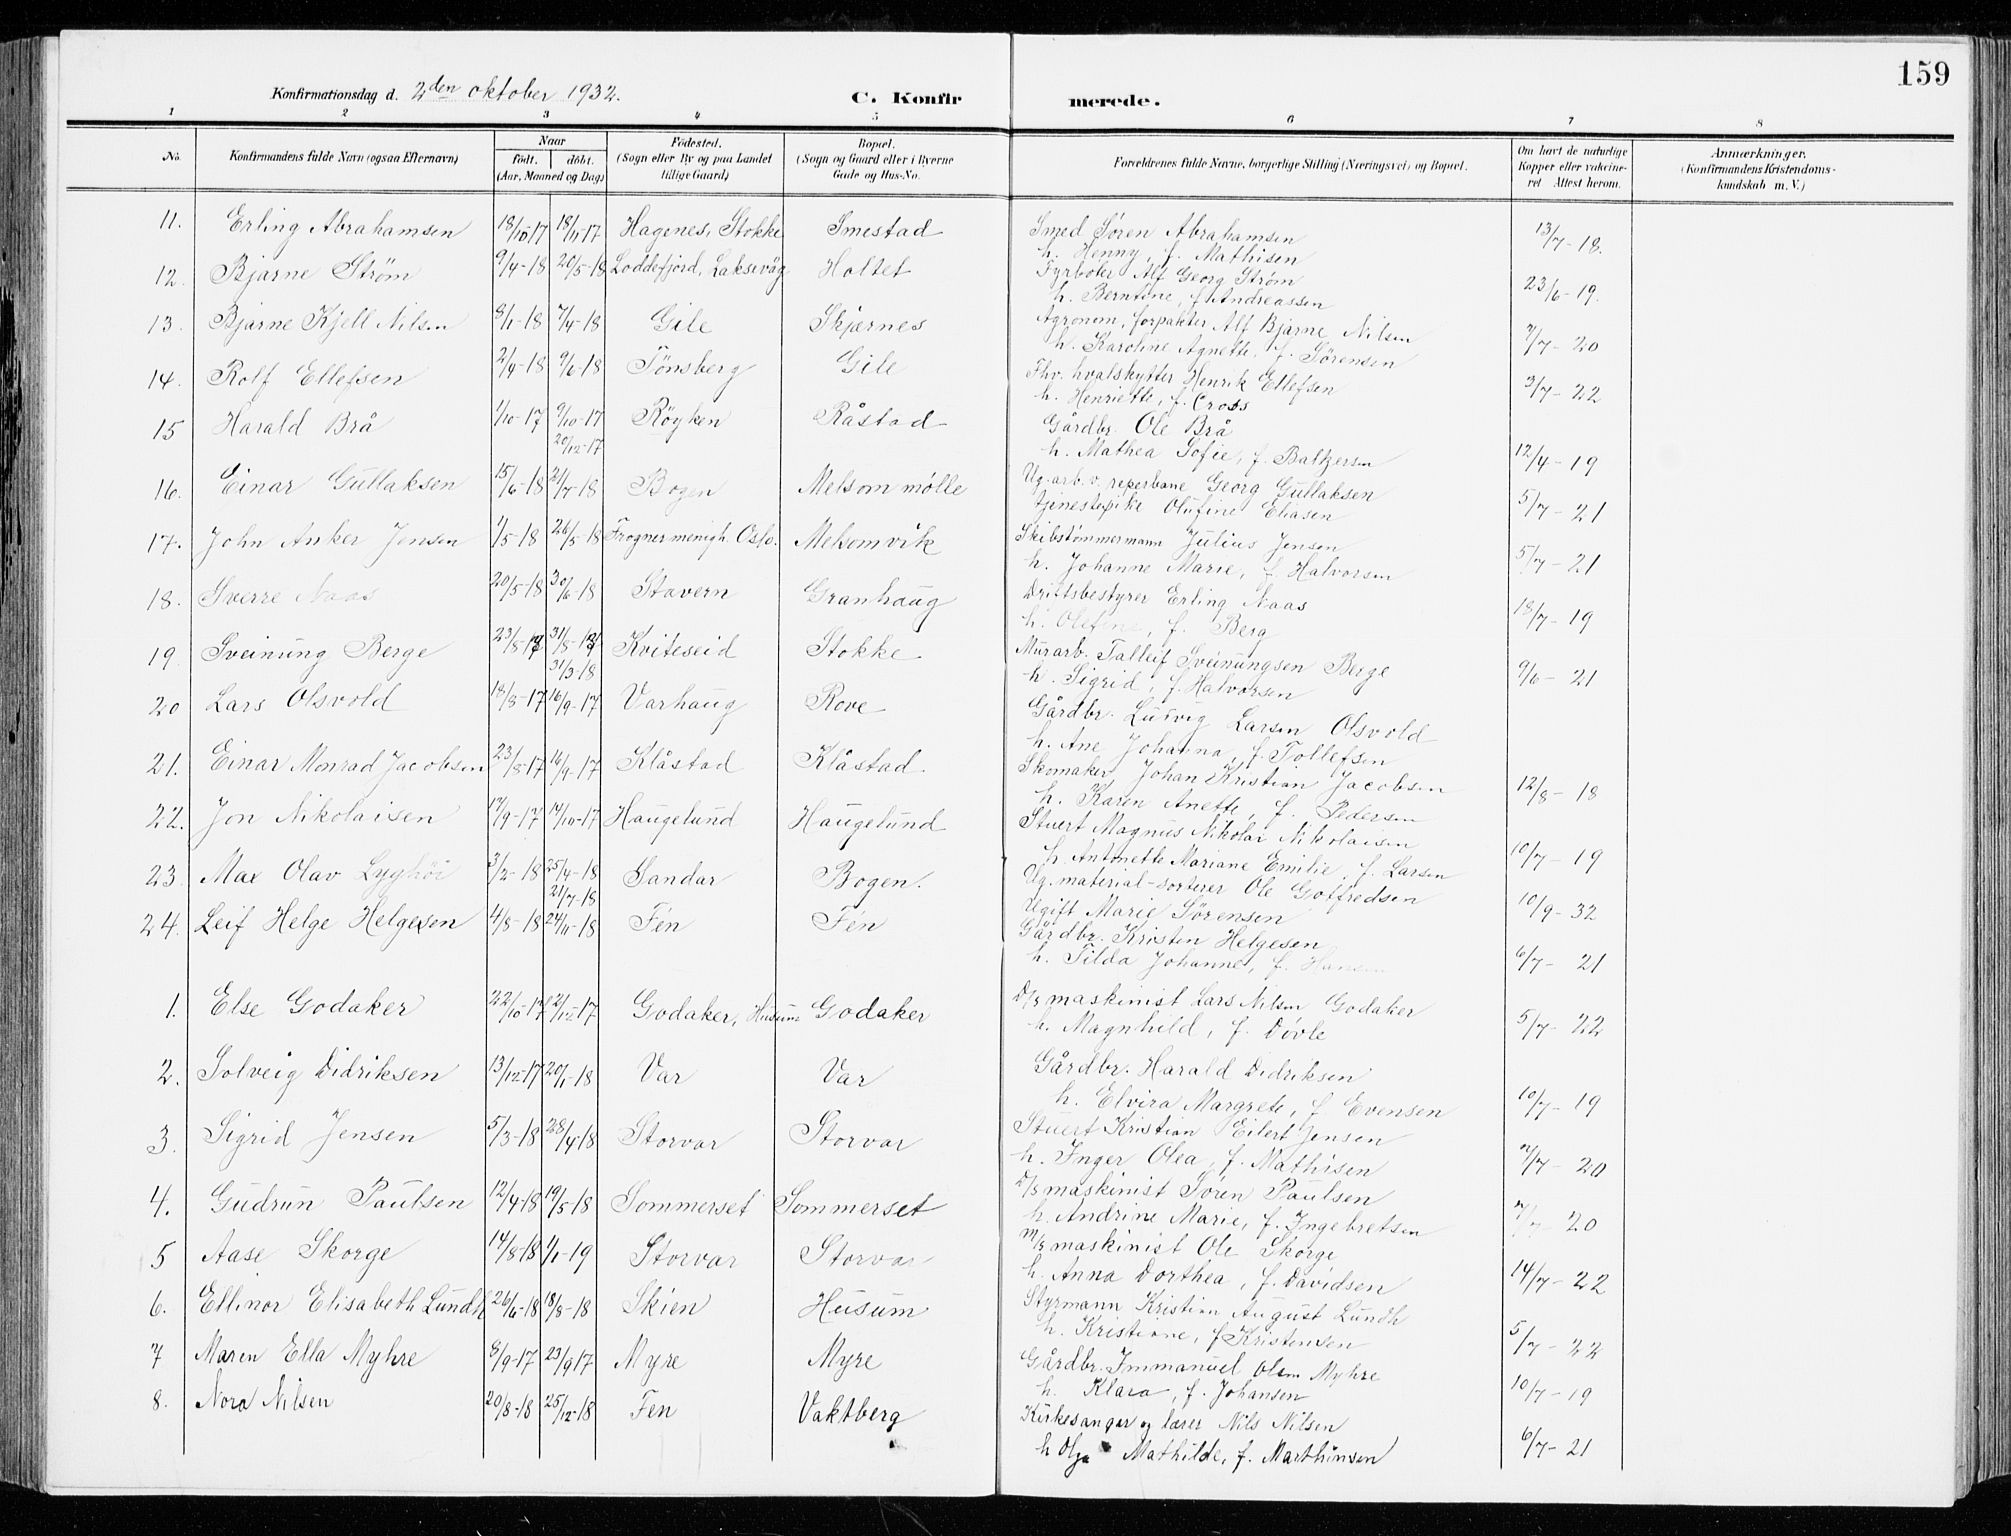 159
Konfirmationsdag d. 2den oktober 1932.
C. Konfirmerede.
1 2 3 4 5 6 7 8
No. Konfirmandens fulde Navn (ogsaa Efternavn) Naar født. døbt. (Aar, Maaned og Dag) Fødested. (Sogn eller By og paa Landet tillige Gaard) Bopæl. (Sogn og Gaard eller i Byerne Gade og Hus-No. Forældrenes fulde Navne, borgerlige Stilling (Næringsvei) og Bopæl. Om havt de naturlige Kopper eller vakcineret. Attest herom. Anmærkninger. (Konfirmandens Kristendomskundskab m. V.)
11. Erling Abrahamsen 18/10-17 18/11-17 Hagenes, Stokke Smestad Smed Søren Abrahamsen 13/7-18.
h. Henny, f. Mathisen
12. Bjarne Strøm 9/4-18 20/5-18 Loddefjord, Laksevåg Holtet Fyrbøter Alf Georg Strøm 23/6-19.
h. Berntine, f. Andreassen
13. Bjarne Kjell Nilsen 8/1-18 7/4-18 Gile Skjærnes Agronom, forpakter Alf Bjarne Nilsen 7/7-20
h. Karoline Agnette, f. Sørensen
14. Rolf Ellefsen 2/4-18 9/6-18 Tönsberg Gile Fhv. hvalskytter Henrik Ellefsen 3/7-22
h. Henriette, f. Cross
15 Harald Brå 1/10-17 9/10-17 Röyken Råstad Gårdbr. Ole Brå
20/12-17 h. Mathea Sofie, f. Baltzersen 12/4-19
16. Einar Gullaksen 15/6-18 21/7-18 Bogen Melsom mølle Ug. arb. v. reperbane Georg Gullaksen
tjenestepike Olufine Eliasen 5/7-21
17. John Anker Jensen 1/5-18 26/5-18 Frogner menigh. Oslo. Melsomvik Skibstömmermann Julius Jensen
h. Johanne Marie, f. Halvorsen 5/7-21
18. Sverre Naas 20/5-18 30/6-18 Stavern Granhaug Driftsbestyrer Erling Naas
h. Olefine, f. Berg 18/7-19
19. Sveinung Berge 23/8-17 31/8-17 Kviteseid Stokke Murarb. Talleif Sveinungsen Berge
31/3-18 h. Sigrid, f. Halvorsen 9/6-21
20 Lars Olsvold 18/8-17 16/9-17 Varhaug Rove Gårdbr. Ludvig Larsen Olsvold
h. Ane Johanna, f. Tollefsen
21. Einar Monrad Jacobsen 23/8-17 16/9-17 Klåstad Klåstad Skomaker Johan Kristian Jacobsen
h. Karen Anette, f. Pedersen 12/8-18
22. Jon Nikolaisen 17/9-17 14/10-17 Haugelund Haugelund Stuert Magnus Nikolai Nikolaisen
h. Antonette Mariane Emilie, f. Larsen 10/7-19
23. Max Olav Lyghöi 3/2-18 25/4-18 Sandar Bogen. Ug. material-sorterer Ole Gotfredsen
21/7-18 Ugift Marie Sörensen 10/9-32
24. Leif Helge Helgesen 4/8-18 24/11-18 Fén Fén Gårdbr. Kristen Helgesen
h. Tilda Johanne, f. Hansen 6/7-21
1. Else Godaker 22/10-17 2/12-17 Godaker, Husum Godaker D/s maskinist Lars Nilsen Godaker
h. Magnhild, f. Dövle 5/7-22
2. Solveig Didriksen 13/12-17 20/1-18 Var Var Gårdbr. Harald Didriksen
h. Elvira Margrete, f. Evensen 10/7-19
3. Sigrid Jensen 5/3-18 28/4-18 Storvar Storvar Stuert Kristian Eilert Jensen
h. Inger Olea, f. Mathisen 7/7-20
4. Gudrun Paulsen 12/4-18 19/5-18 Sommerset Sommerset D/s maskinist Sören Paulsen
h. Andrine Marie, f. Ingebretsen 7/7-20
5 Aase Skorge 14/8-18 1/1-19 Storvar Storvar M/s maskinist Ole Skorge
h. Anna Dorthea, f. Davidsen 14/7-22
6. Ellinor Elisabeth Lundh 26/6-18 18/8-18 Skien Husum Styrmann Kristian August Lundh
h. Kristiane, f. Kristensen 5/7-22
7 Maren Ella Myhre 8/9-17 23/9-17 Myre Myre Gårdbr. Immanuel Olsen Myhre
h. Klara, f. Johansen 10/7-19
8. Nora Nilsen 20/8-18 25/12-18 Fen Vaktberg Kirkesanger og lærer Nils Nilsen
h Olga Mathilde, f. Marthinsen 6/7-21